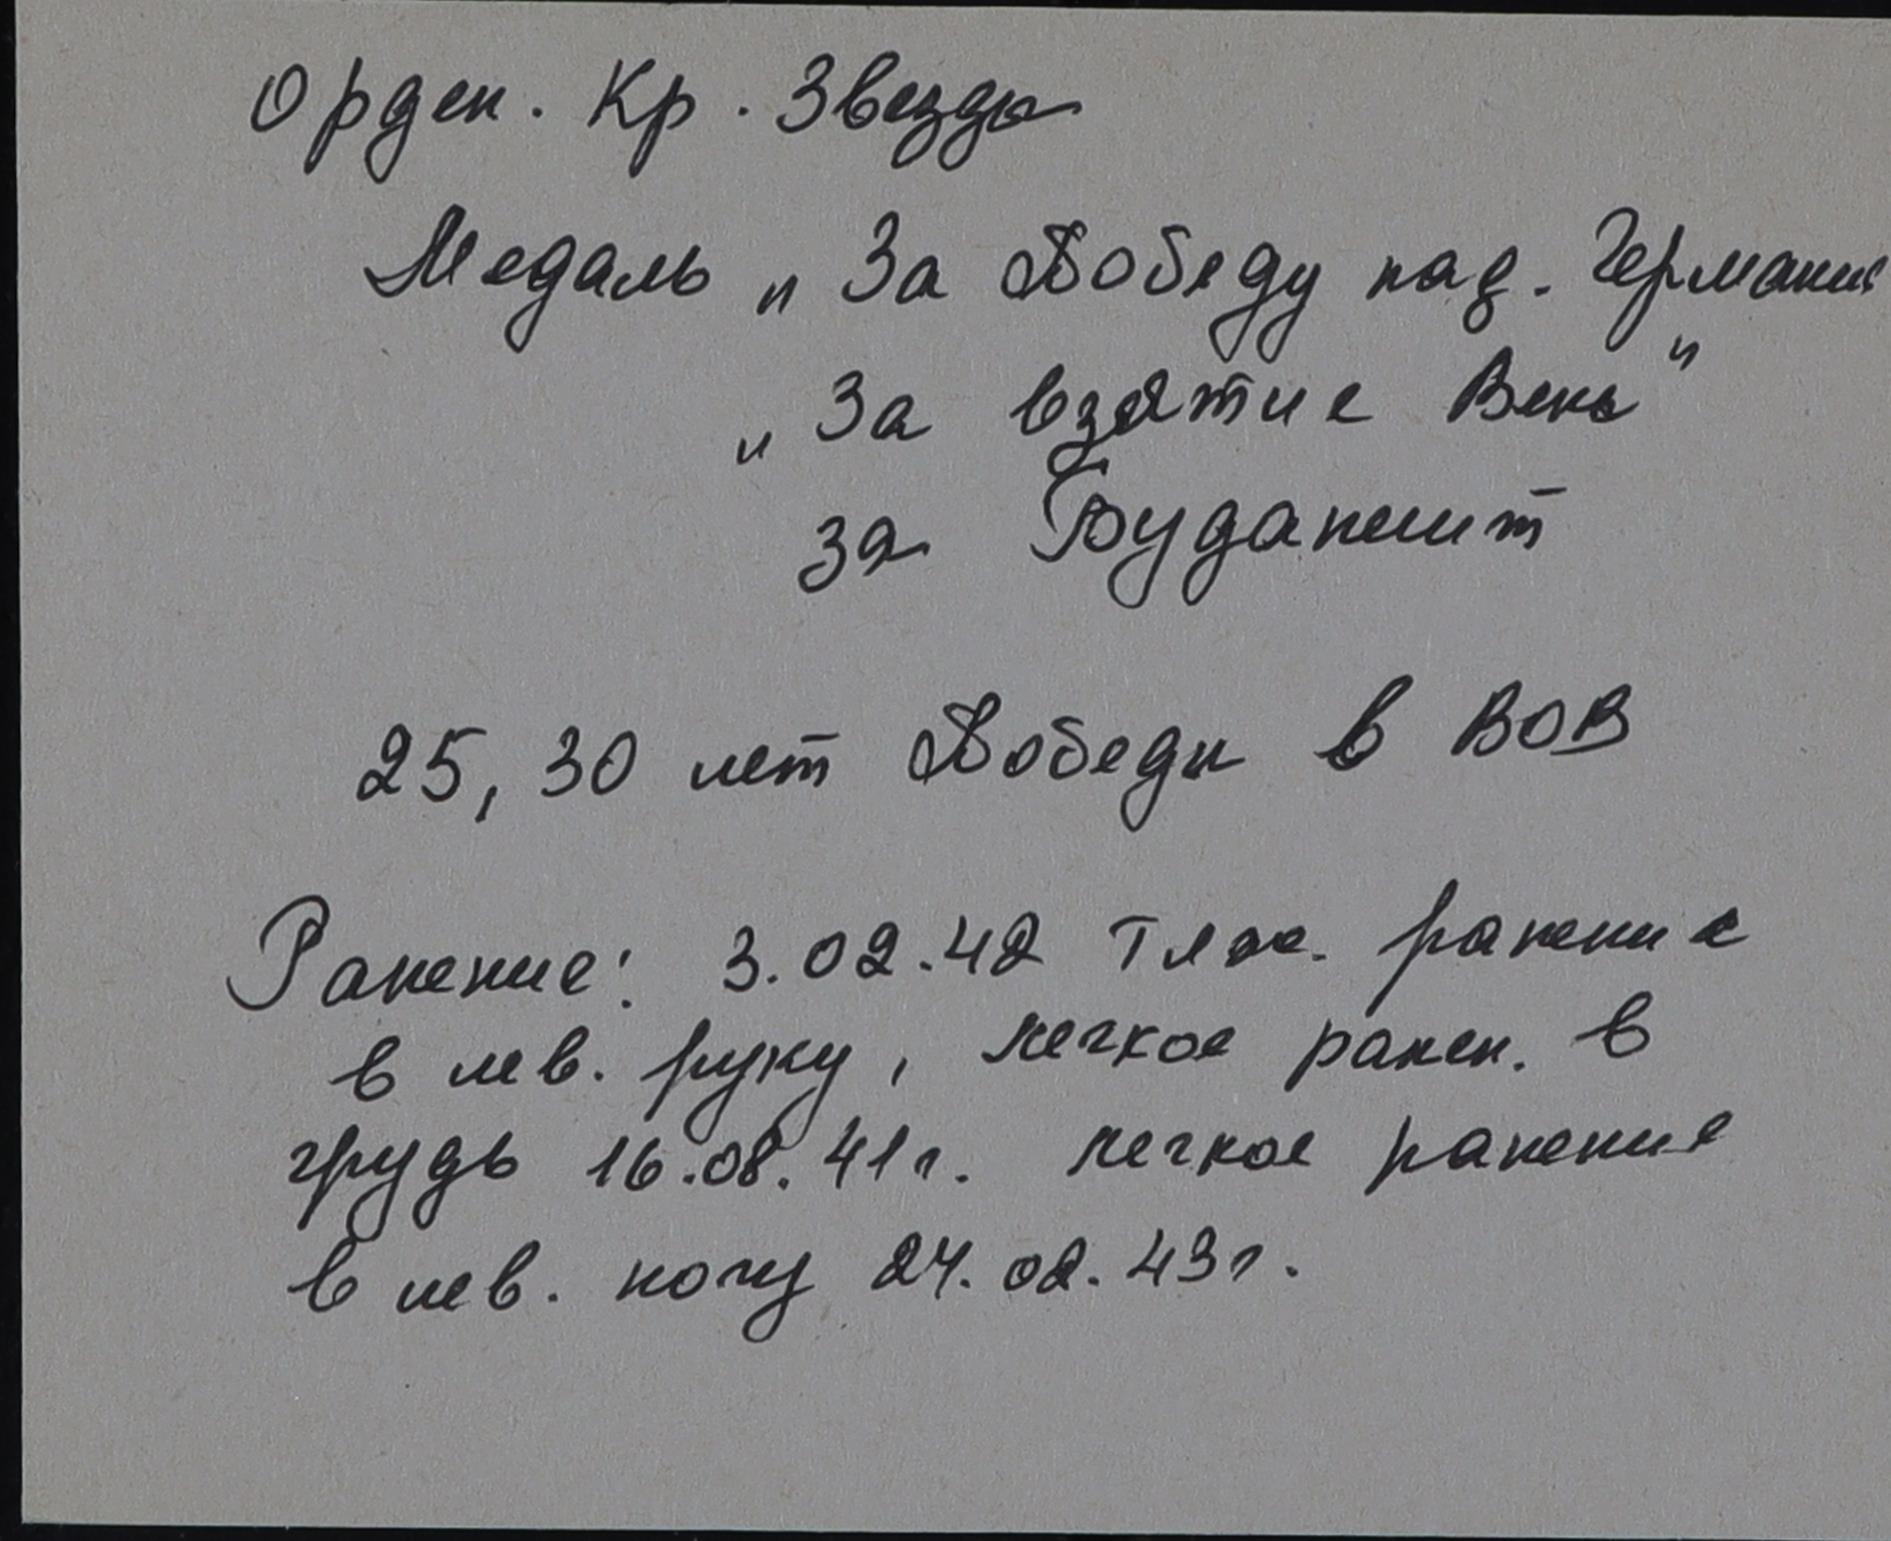 Орден. Кр. Звезды
Медаль „За Победу над. Германие
„За взятие Вены"
за Будапешт
25, 30 лет Победы в ВОВ
Ранение: 3.02.42 тяж. ранение
в лев. руку, легкое ранен. в
грудь 16.08.41г. легкое ранение
в лев. ногу 24.02.43г.